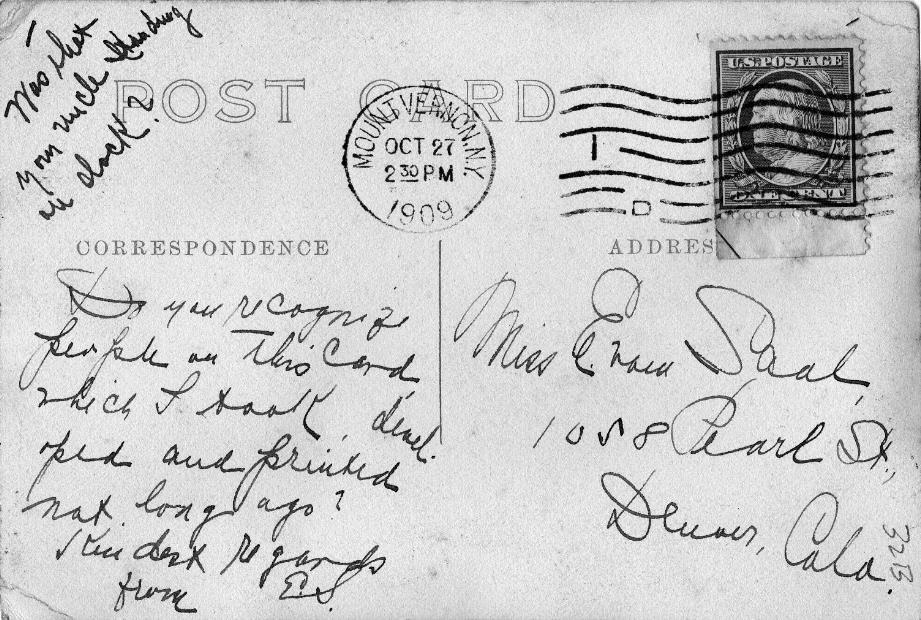 Was that
your uncle standing
on dock?
POST CARD
MOUNT VERNON, N.Y.
OCT 27
2 30 PM
1909
U.S. POSTAGE
ONE CENT
CORRESPONDENCE
ADDRES
Do you recognize
people on this card
which I took, devel
oped and printed
not long ago?
Kindest regards
from E.S.
Miss E. Saal,
1058 Pearl St.,
Denver, Colo.